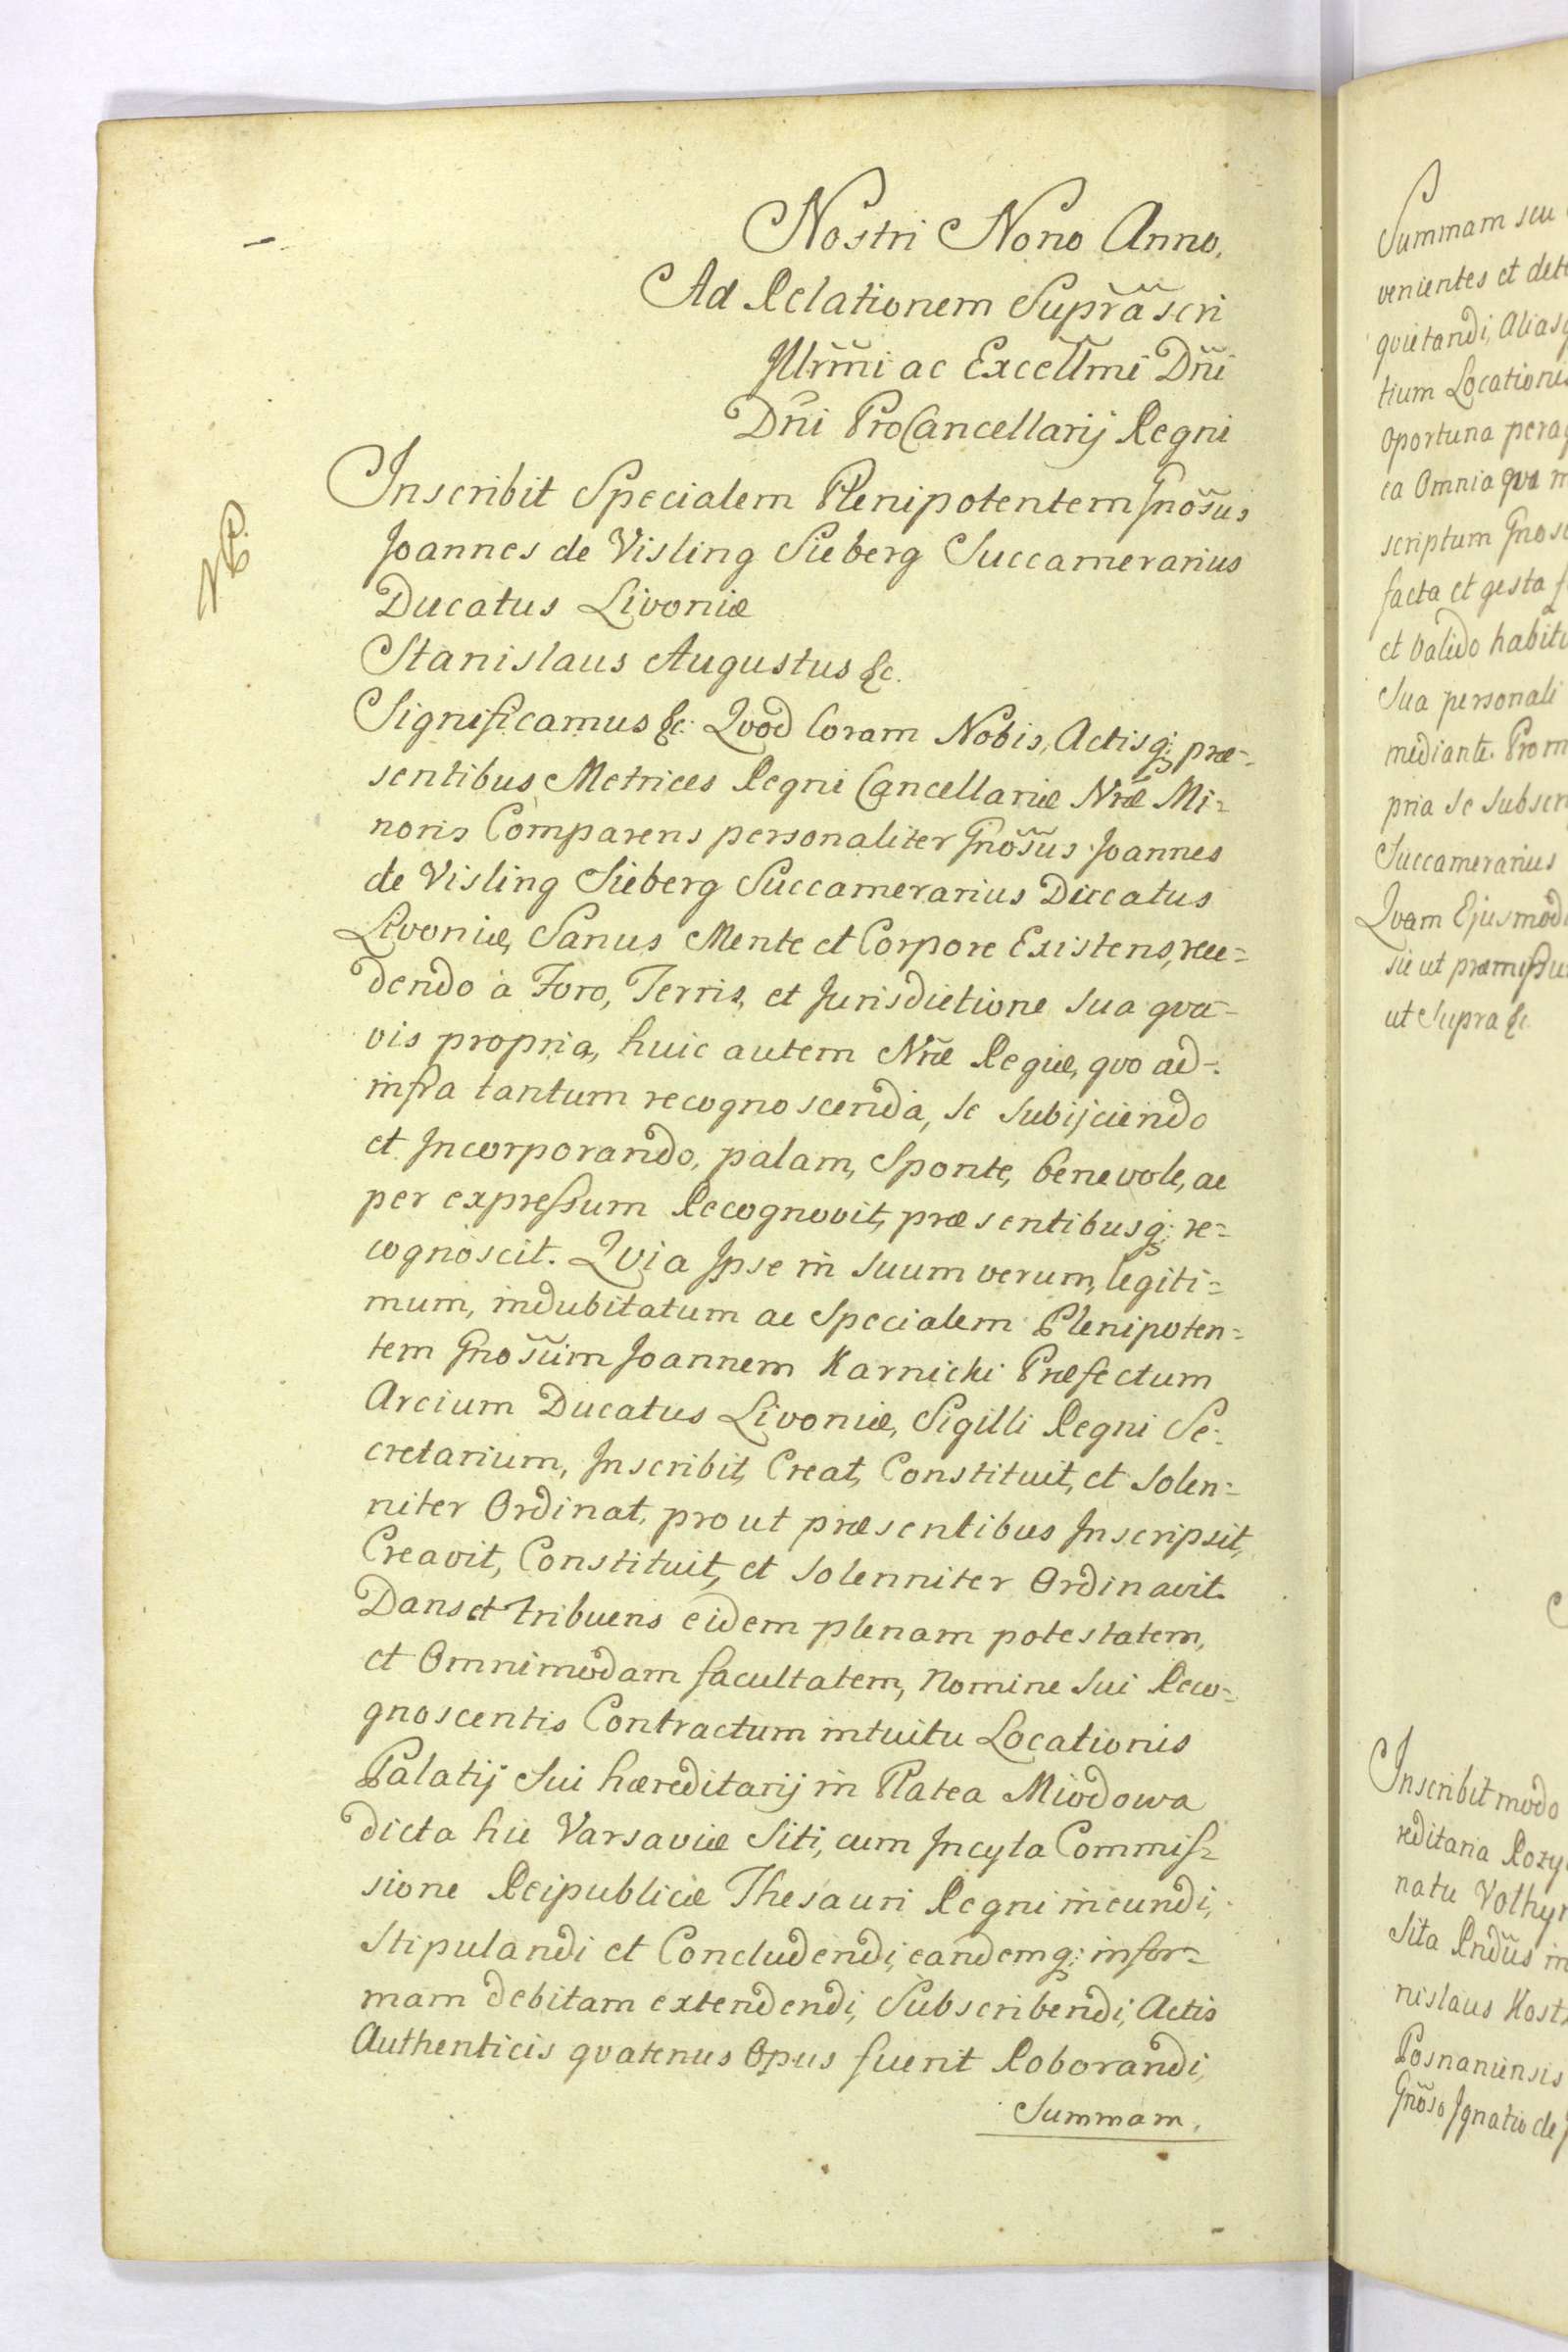 Nostri Nono Anno.
Ad Relationem Supra͂scri
Illrm̃i ac Excellm̃i Dñi
Dñi ProCancellarij Regni
Inscribit Specialem Plenipotentem Gnosũs
Joannes de Visling Sieberg Succamerarius
Ducatus Livoniæ
Stanislaus Augustus &c.
Significamus &c: Qvod Coram Nobis, Actisq; præ-
sentibus Metrices Regni Cancellariæ Nræ̃ Mi=
noris Comparens personaliter Gnosũs Joannes
de Visling Sieberg Succamerarius Ducatus
Livoniæ, Sanus Mente et Corpore Existens, rece=
dendo à Foro, Terris, et Jurisdictione sua qva-
vis propria, huic autem Nræ̃ Regiæ, qvo ad-
infra tantum recognoscenda, se subijciendo
et Incorporando, palam, Sponte, benevole, ac
per expressum Recognovit, præsentibusq; re=
cognoscit. Qvia Ipse in suum verum, legiti=
mum, indubitatum ac Specialem Plenipoten=
tem Gnosũm Joannem Karnicki Præfectum
Arcium Ducatus Livoniæ, Sigilli Regni Se-
cretarium, Inscribit, Creat, Constituit, et Solen=
niter Ordinat, prout præsentibus Inscripsit,
Creavit, Constituit, et solenniter Ordinavit.
Dans et tribuens eidem plenam potestatem,
et Omnimodam facultatem, Nomine sui Reco=
gnoscentis Contractum intuitu Locationis
Palatij Sui hæreditarij in Platea Miodowa
dicta hic Varsaviæ Siti, cum Incyta Commis=
sione Reipublicæ Thesauri Regni ineundi,
Stipulandi et Concludendi, eandemq; in for=
mam debitam extendendi, Subscribendi, Actis
Authenticis qvatenus Opus fuerit Roborandi,
Summam.
NB.
Summam seu
venientes et
qvietandi, Alias
tium Locationis
Oportuna
ea Omnia qvæ
scriptum
facta et gesta
et valido
Sua personali
mediante.
pria se
Succamerarius
Qvam Ejusmodi
sic ut
ut Supra &c
Inscribit modo
reditaria
natu
Sita Rndũs in
nislaus
Posnaniensis
Gnõso Ignatio de